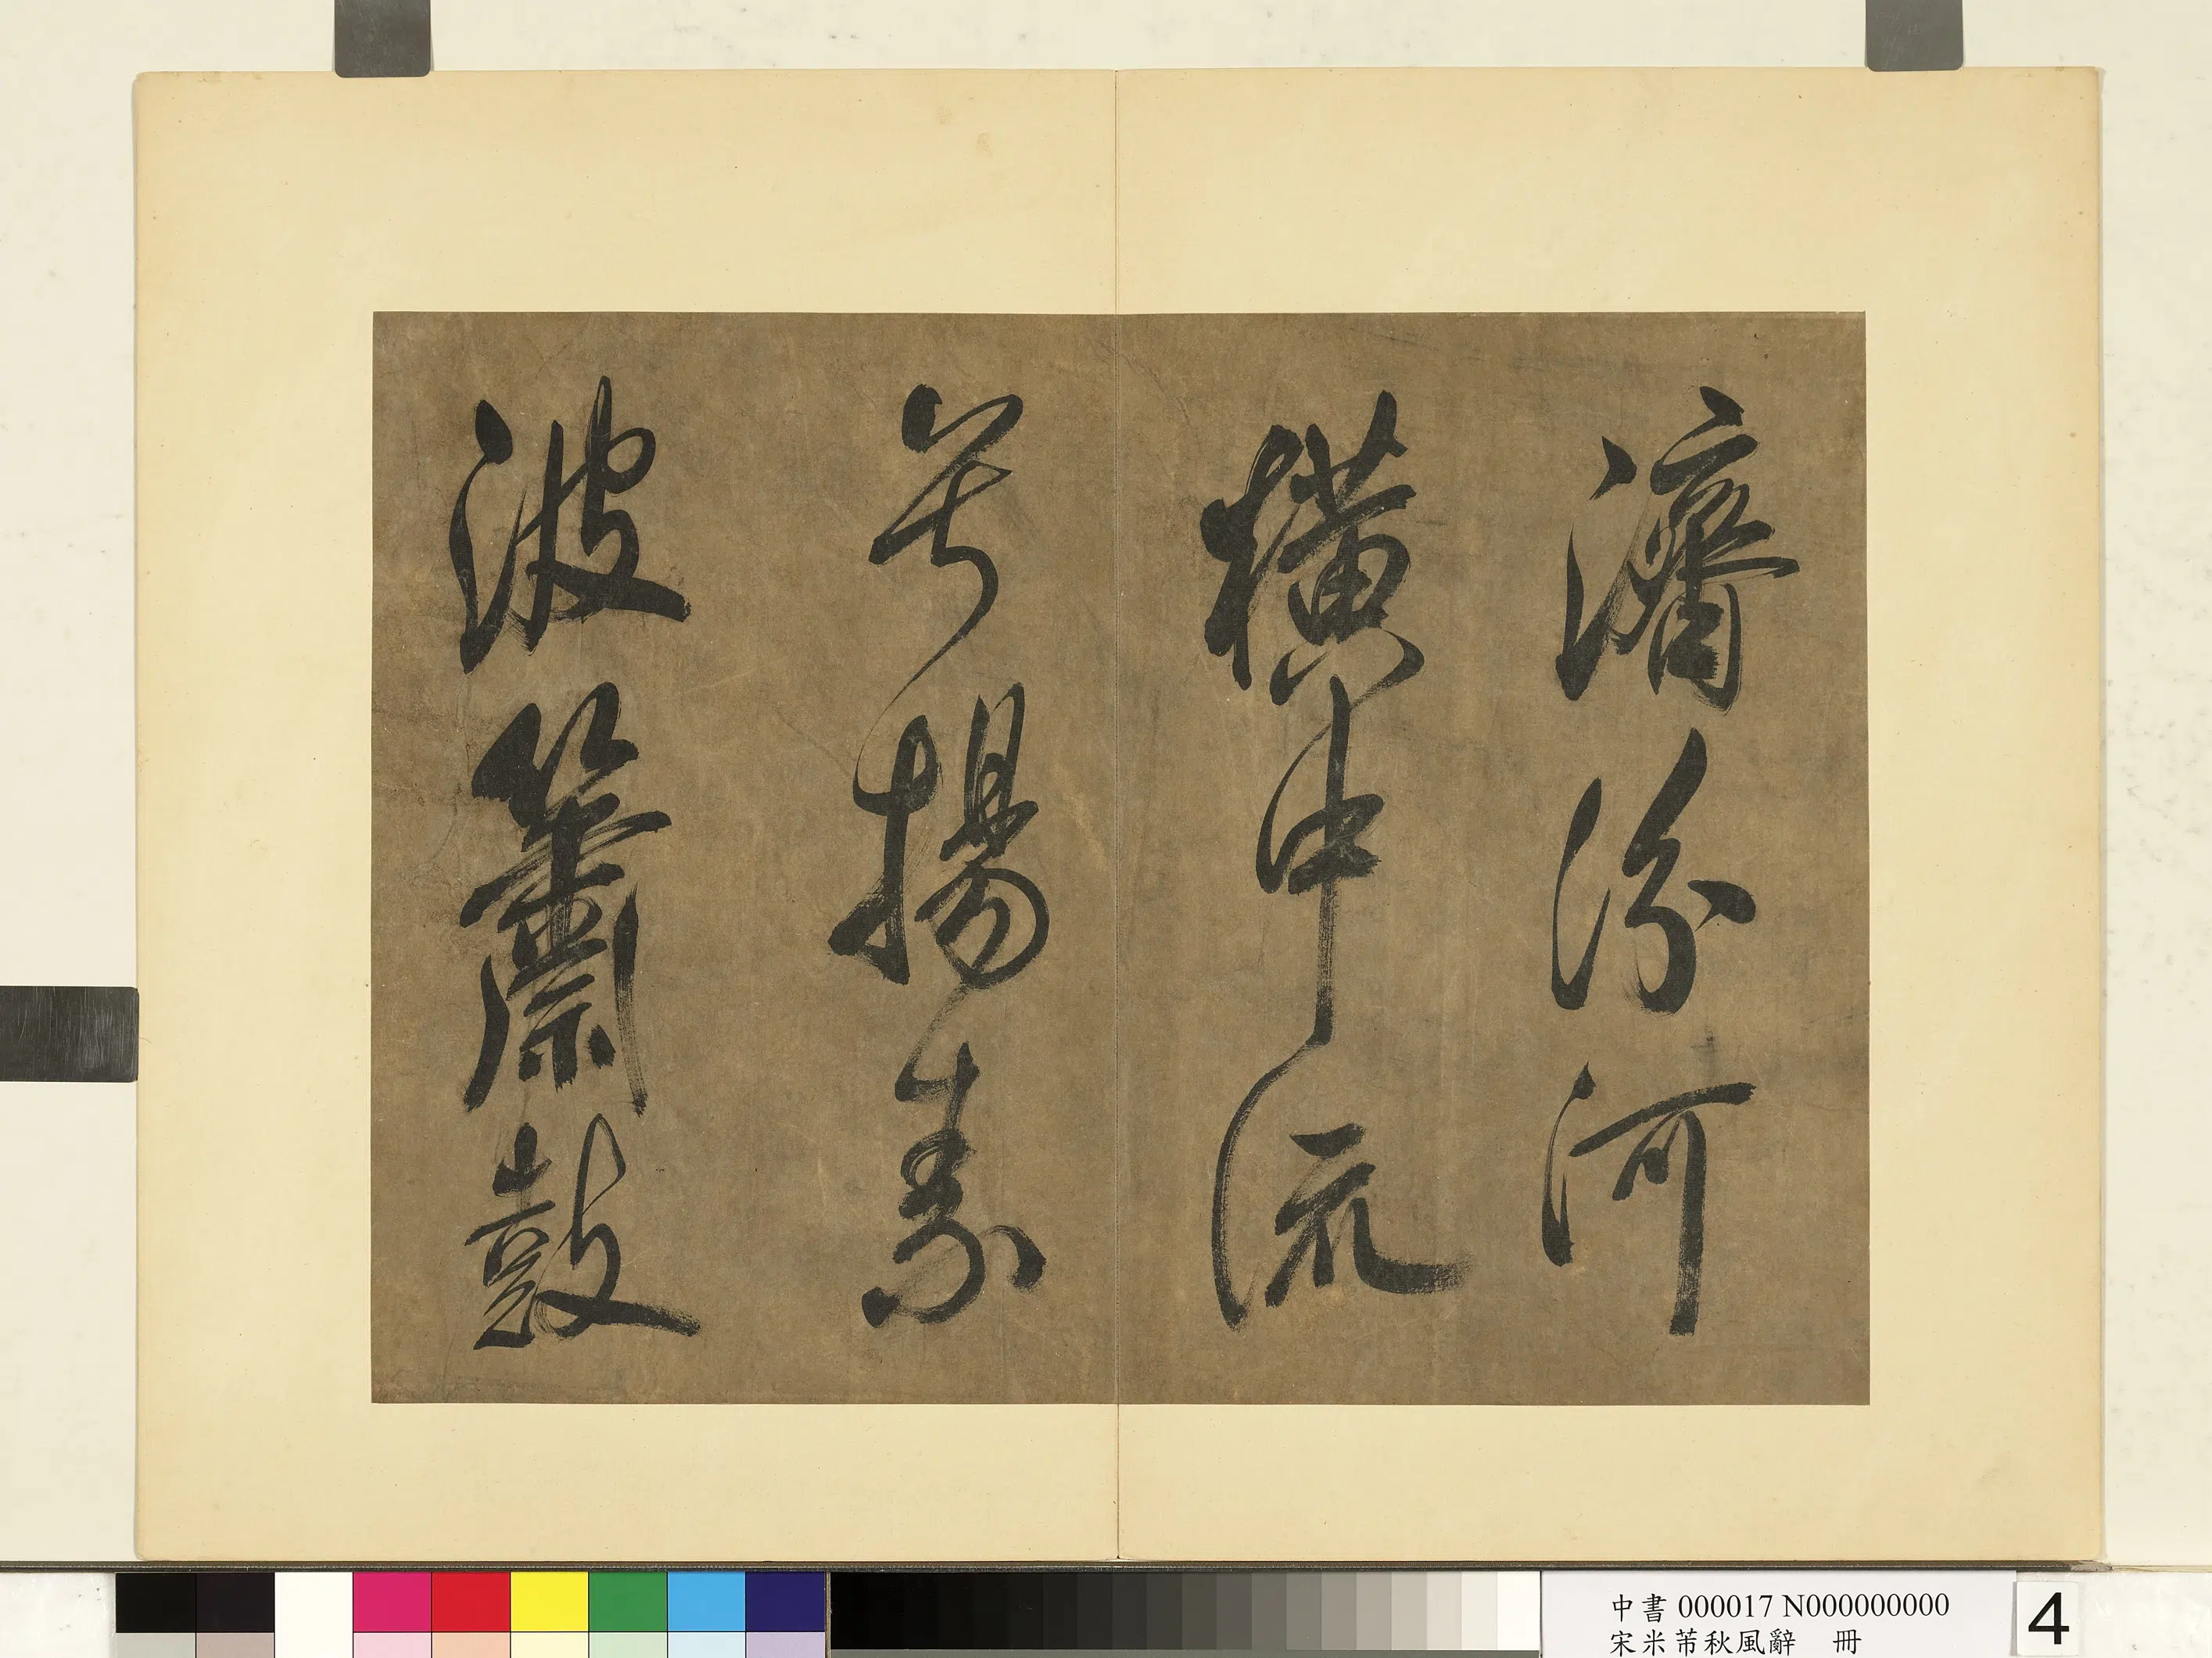 濟汾河
橫中流
兮揚素
波簫鼓
中書 000017 N000000000
宋米芾秋風辭 冊
4